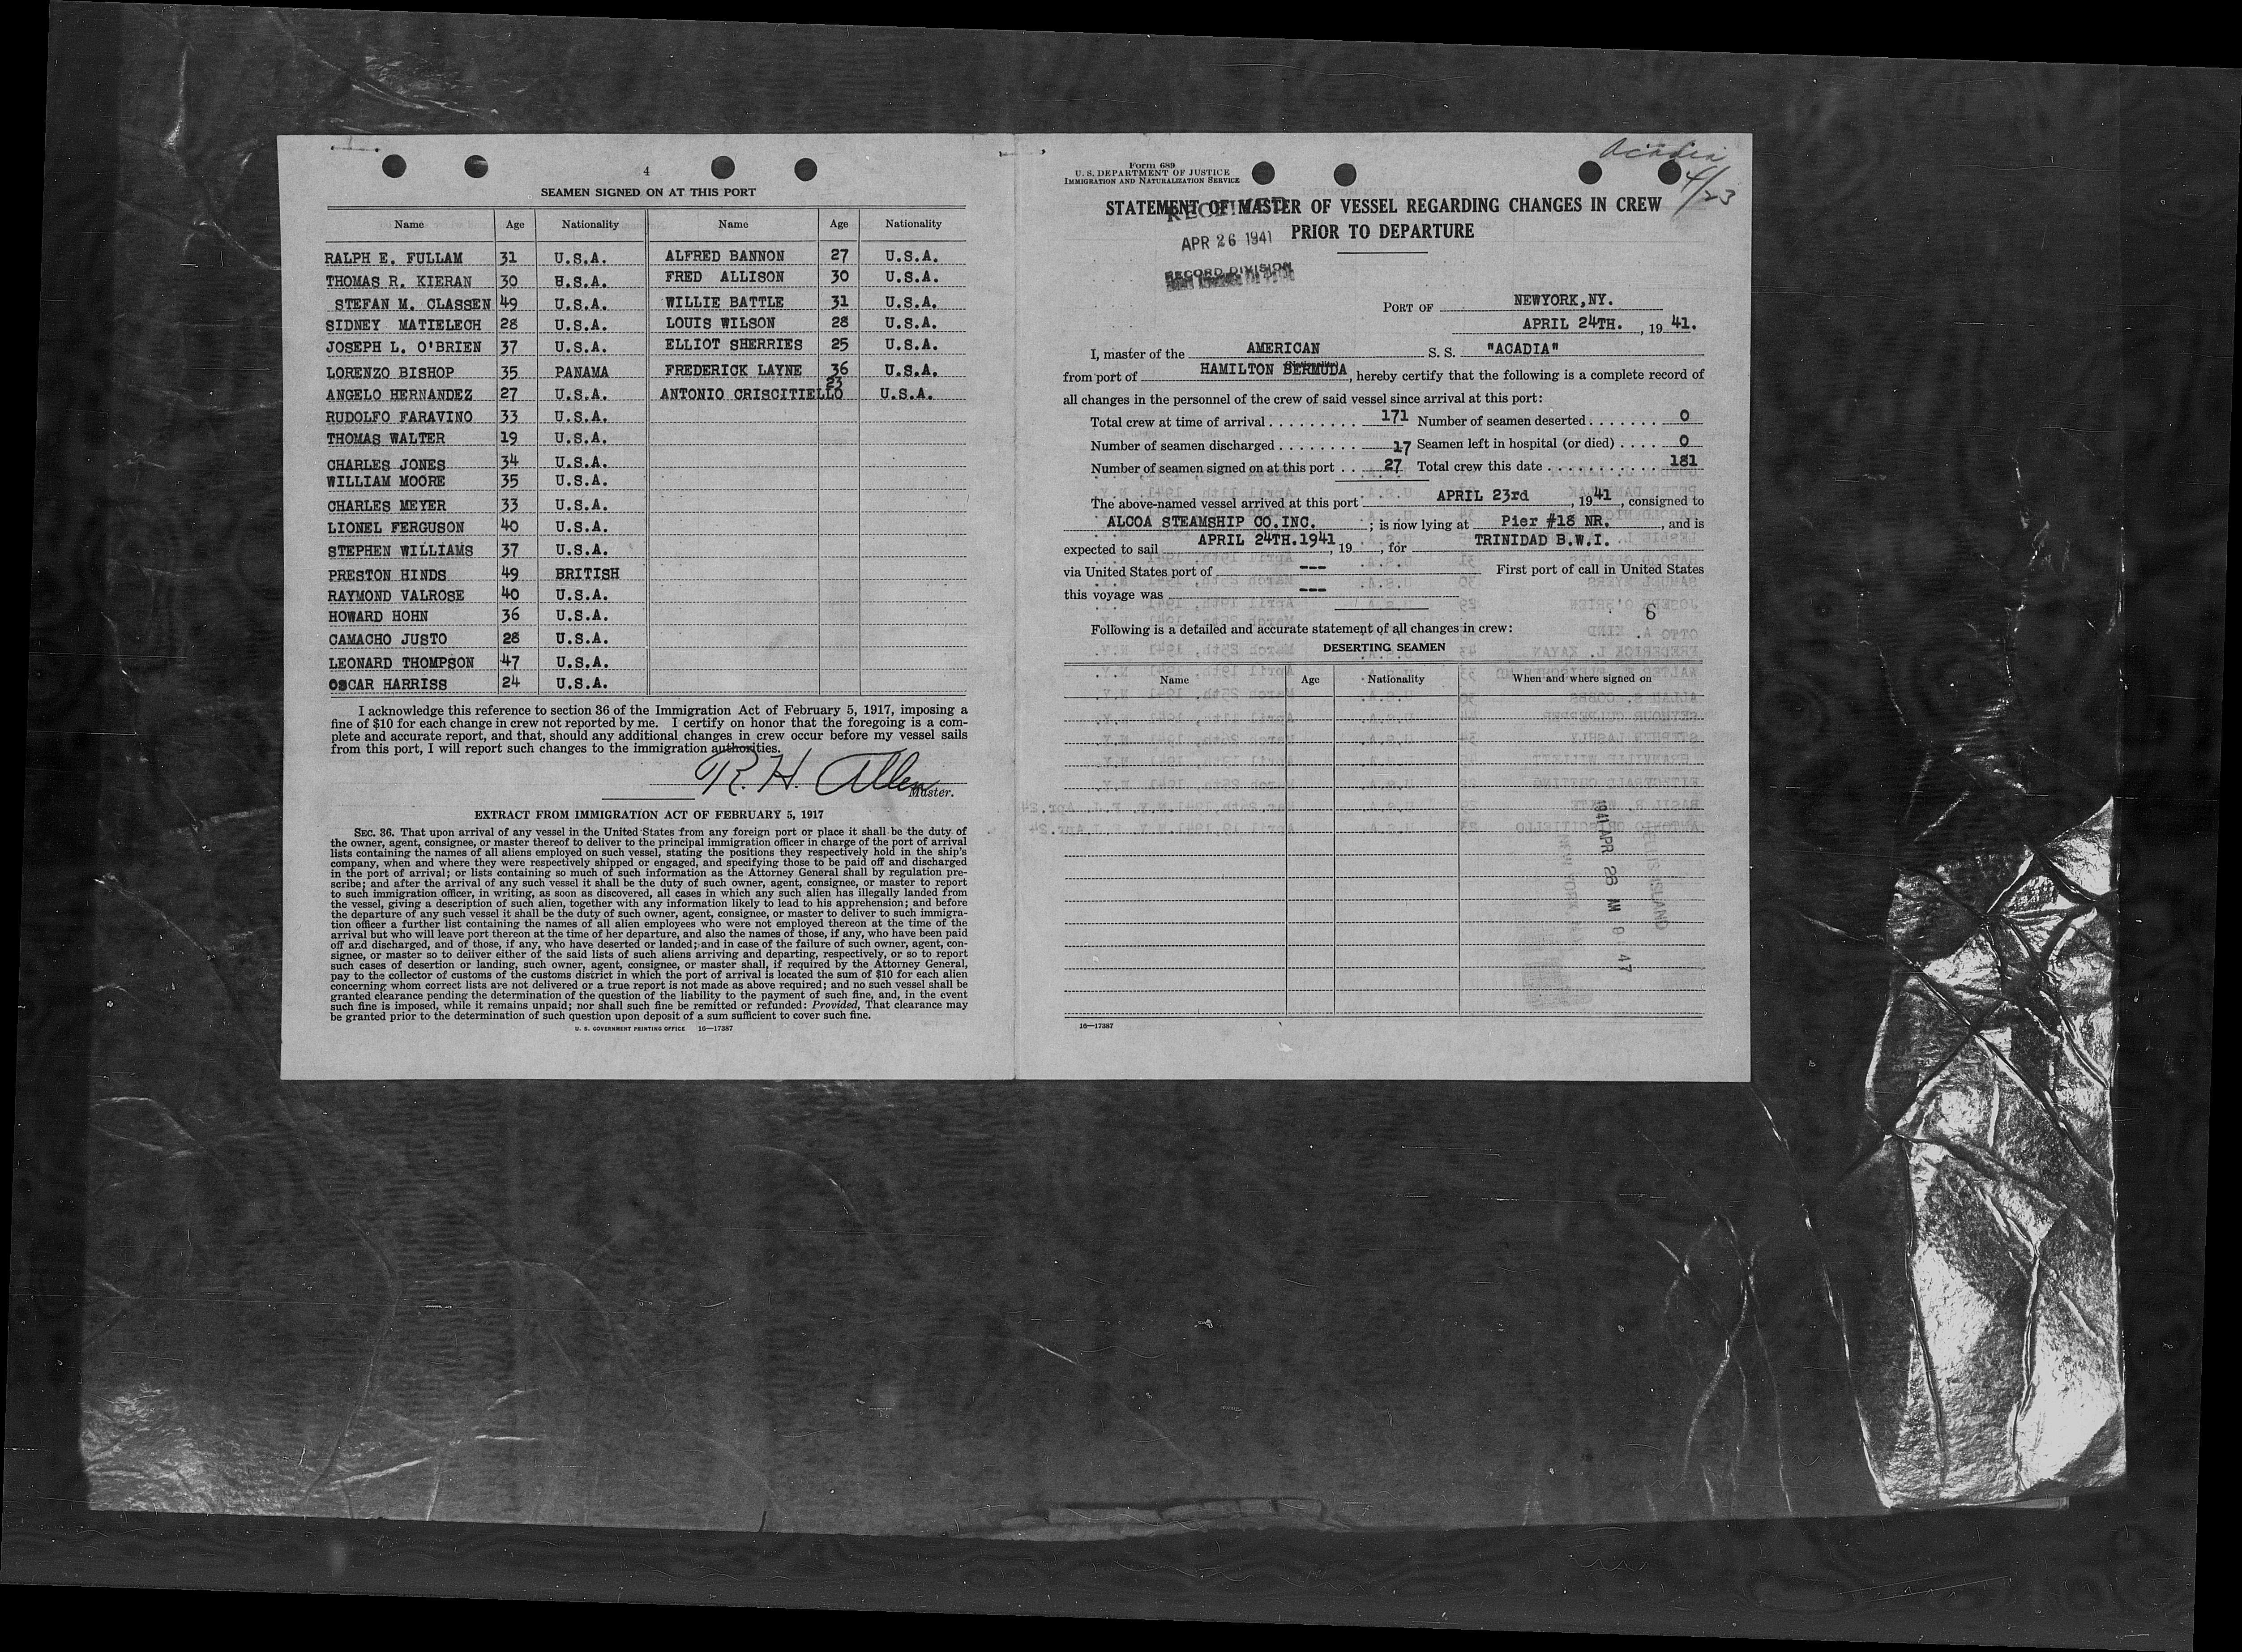 4
SEAMEN SIGNED ON AT THIS PORT
Name Age Nationality Name Age Nationality
RALPH E. FULLAM 31 U.S.A. ALFRED BANNON 27 U.S.A.
THOMAS R. KIERAN 30 U.S.A. FRED ALLISON 30 U.S.A.
STEFAN M. CLASSEN 49 U.S.A. WILLIE BATTLE 31 U.S.A.
SIDNEY MATIELECH 28 U.S.A. LOUIS WILSON 28 U.S.A.
JOSEPH L. O'BRIEN 37 U.S.A. ELLIOT SHERRIES 25 U.S.A.
LORENZO BISHOP 35 PANAMA FREDERICK LAYNE 36 U.S.A.
ANGELO HERNANDEZ 27 U.S.A. ANTONIO CRISCITIELLO 23 U.S.A.
RUDOLFO FARAVINO 33 U.S.A.
THOMAS WALTER 19 U.S.A.
CHARLES JONES 34 U.S.A.
WILLIAM MOORE 35 U.S.A.
CHARLES MEYER 33 U.S.A.
LIONEL FERGUSON 40 U.S.A.
STEPHEN WILLIAMS 37 U.S.A.
PRESTON HINDS 49 BRITISH
RAYMOND VALROSE 40 U.S.A.
HOWARD HOHN 36 U.S.A.
CAMACHO JUSTO 28 U.S.A.
LEONARD THOMPSON 47 U.S.A.
OSCAR HARRISS 24 U.S.A.
I acknowledge this reference to section 36 of the Immigration Act of February 5, 1917, imposing a
fine of $10 for each change in crew not reported by me. I certify on honor that the foregoing is a com-
plete and accurate report, and that, should any additional changes in crew occur before my vessel sails
from this port, I will report such changes to the immigration authorities.
R. H. Allen
Master.
EXTRACT FROM IMMIGRATION ACT OF FEBRUARY 5, 1917
SEC. 36. That upon arrival of any vessel in the United States from any foreign port or place it shall be the duty of
the owner, agent, consignee, or master thereof to deliver to the principal immigration officer in charge of the port of arrival
lists containing the names of all aliens employed on such vessel, stating the positions they respectively hold in the ship's
company, when and where they were respectively shipped or engaged, and specifying those to be paid off and discharged
in the port of arrival; or lists containing so much of such information as the Attorney General shall by regulation pre-
scribe; and after the arrival of any such vessel it shall be the duty of such owner, agent, consignee, or master to report
to such immigration officer, in writing, as soon as discovered, all cases in which any such alien has illegally landed from
the vessel, giving a description of such alien, together with any information likely to lead to his apprehension; and before
the departure of any such vessel it shall be the duty of such owner, agent, consignee, or master to deliver to such immigra-
tion officer a further list containing the names of all alien employees who were not employed thereon at the time of the
arrival but who will leave port thereon at the time of her departure, and also the names of those, if any, who have been paid
off and discharged, and of those, if any, who have deserted or landed; and in case of the failure of such owner, agent, con-
signee, or master so to deliver either of the said lists of such aliens arriving and departing, respectively, or so to report
such cases of desertion or landing, such owner, agent, consignee, or master shall, if required by the Attorney General,
pay to the collector of customs of the customs district in which the port of arrival is located the sum of $10 for each alien
concerning whom correct lists are not delivered or a true report is not made as above required; and no such vessel shall be
granted clearance pending the determination of the question of the liability to the payment of such fine, and, in the event
such fine is imposed, while it remains unpaid; nor shall such fine be remitted or refunded: Provided, That clearance may
be granted prior to the determination of such question upon deposit of a sum sufficient to cover such fine.
U. S. GOVERNMENT PRINTING OFFICE 16—17387
Acadia
4/23
Form 689
U. S. DEPARTMENT OF JUSTICE
IMMIGRATION AND NATURALIZATION SERVICE
STATEMENT OF MASTER OF VESSEL REGARDING CHANGES IN CREW
PRIOR TO DEPARTURE
RECEIVED
APR 26 1941
RECORD DIVISION
PORT OF NEWYORK, NY.
APRIL 24TH., 19 41.
I, master of the AMERICAN S. S. "ACADIA"
from port of HAMILTON BERMUDA, hereby certify that the following is a complete record of
all changes in the personnel of the crew of said vessel since arrival at this port:
Total crew at time of arrival 171 Number of seamen deserted 0
Number of seamen discharged 17 Seamen left in hospital (or died) 0
Number of seamen signed on at this port 27 Total crew this date 181
The above-named vessel arrived at this port APRIL 23rd, 1941, consigned to
ALCOA STEAMSHIP CO.INC.; is now lying at Pier #18 NR., and is
expected to sail APRIL 24TH.1941, 19 , for TRINIDAD B.W.I.
via United States port of --- First port of call in United States
this voyage was ---
6
Following is a detailed and accurate statement of all changes in crew:
DESERTING SEAMEN
Name Age Nationality When and where signed on
1941 APR 26 AM 9 47
ELLIS ISLAND
NEW YORK
16—17387